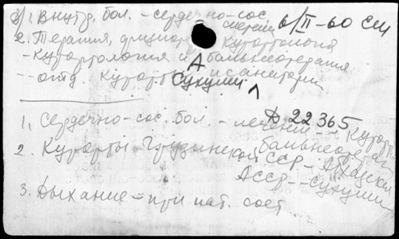 1. Внутр. бол. - сердечно-сос. 6/II-60 СМ
2. Терапия, физиотер. Курортология
- Курортология и бальнеотерапия
- отд. курорты и санатории
Сухуми
Д 22365
1. Сердечно-сос. бол. - лечение - курорт
2. Курорты Грузинской ССР - Абхазская
бальнеотер.
АССР - Сухуми
3. Дыхание - при пат. сост